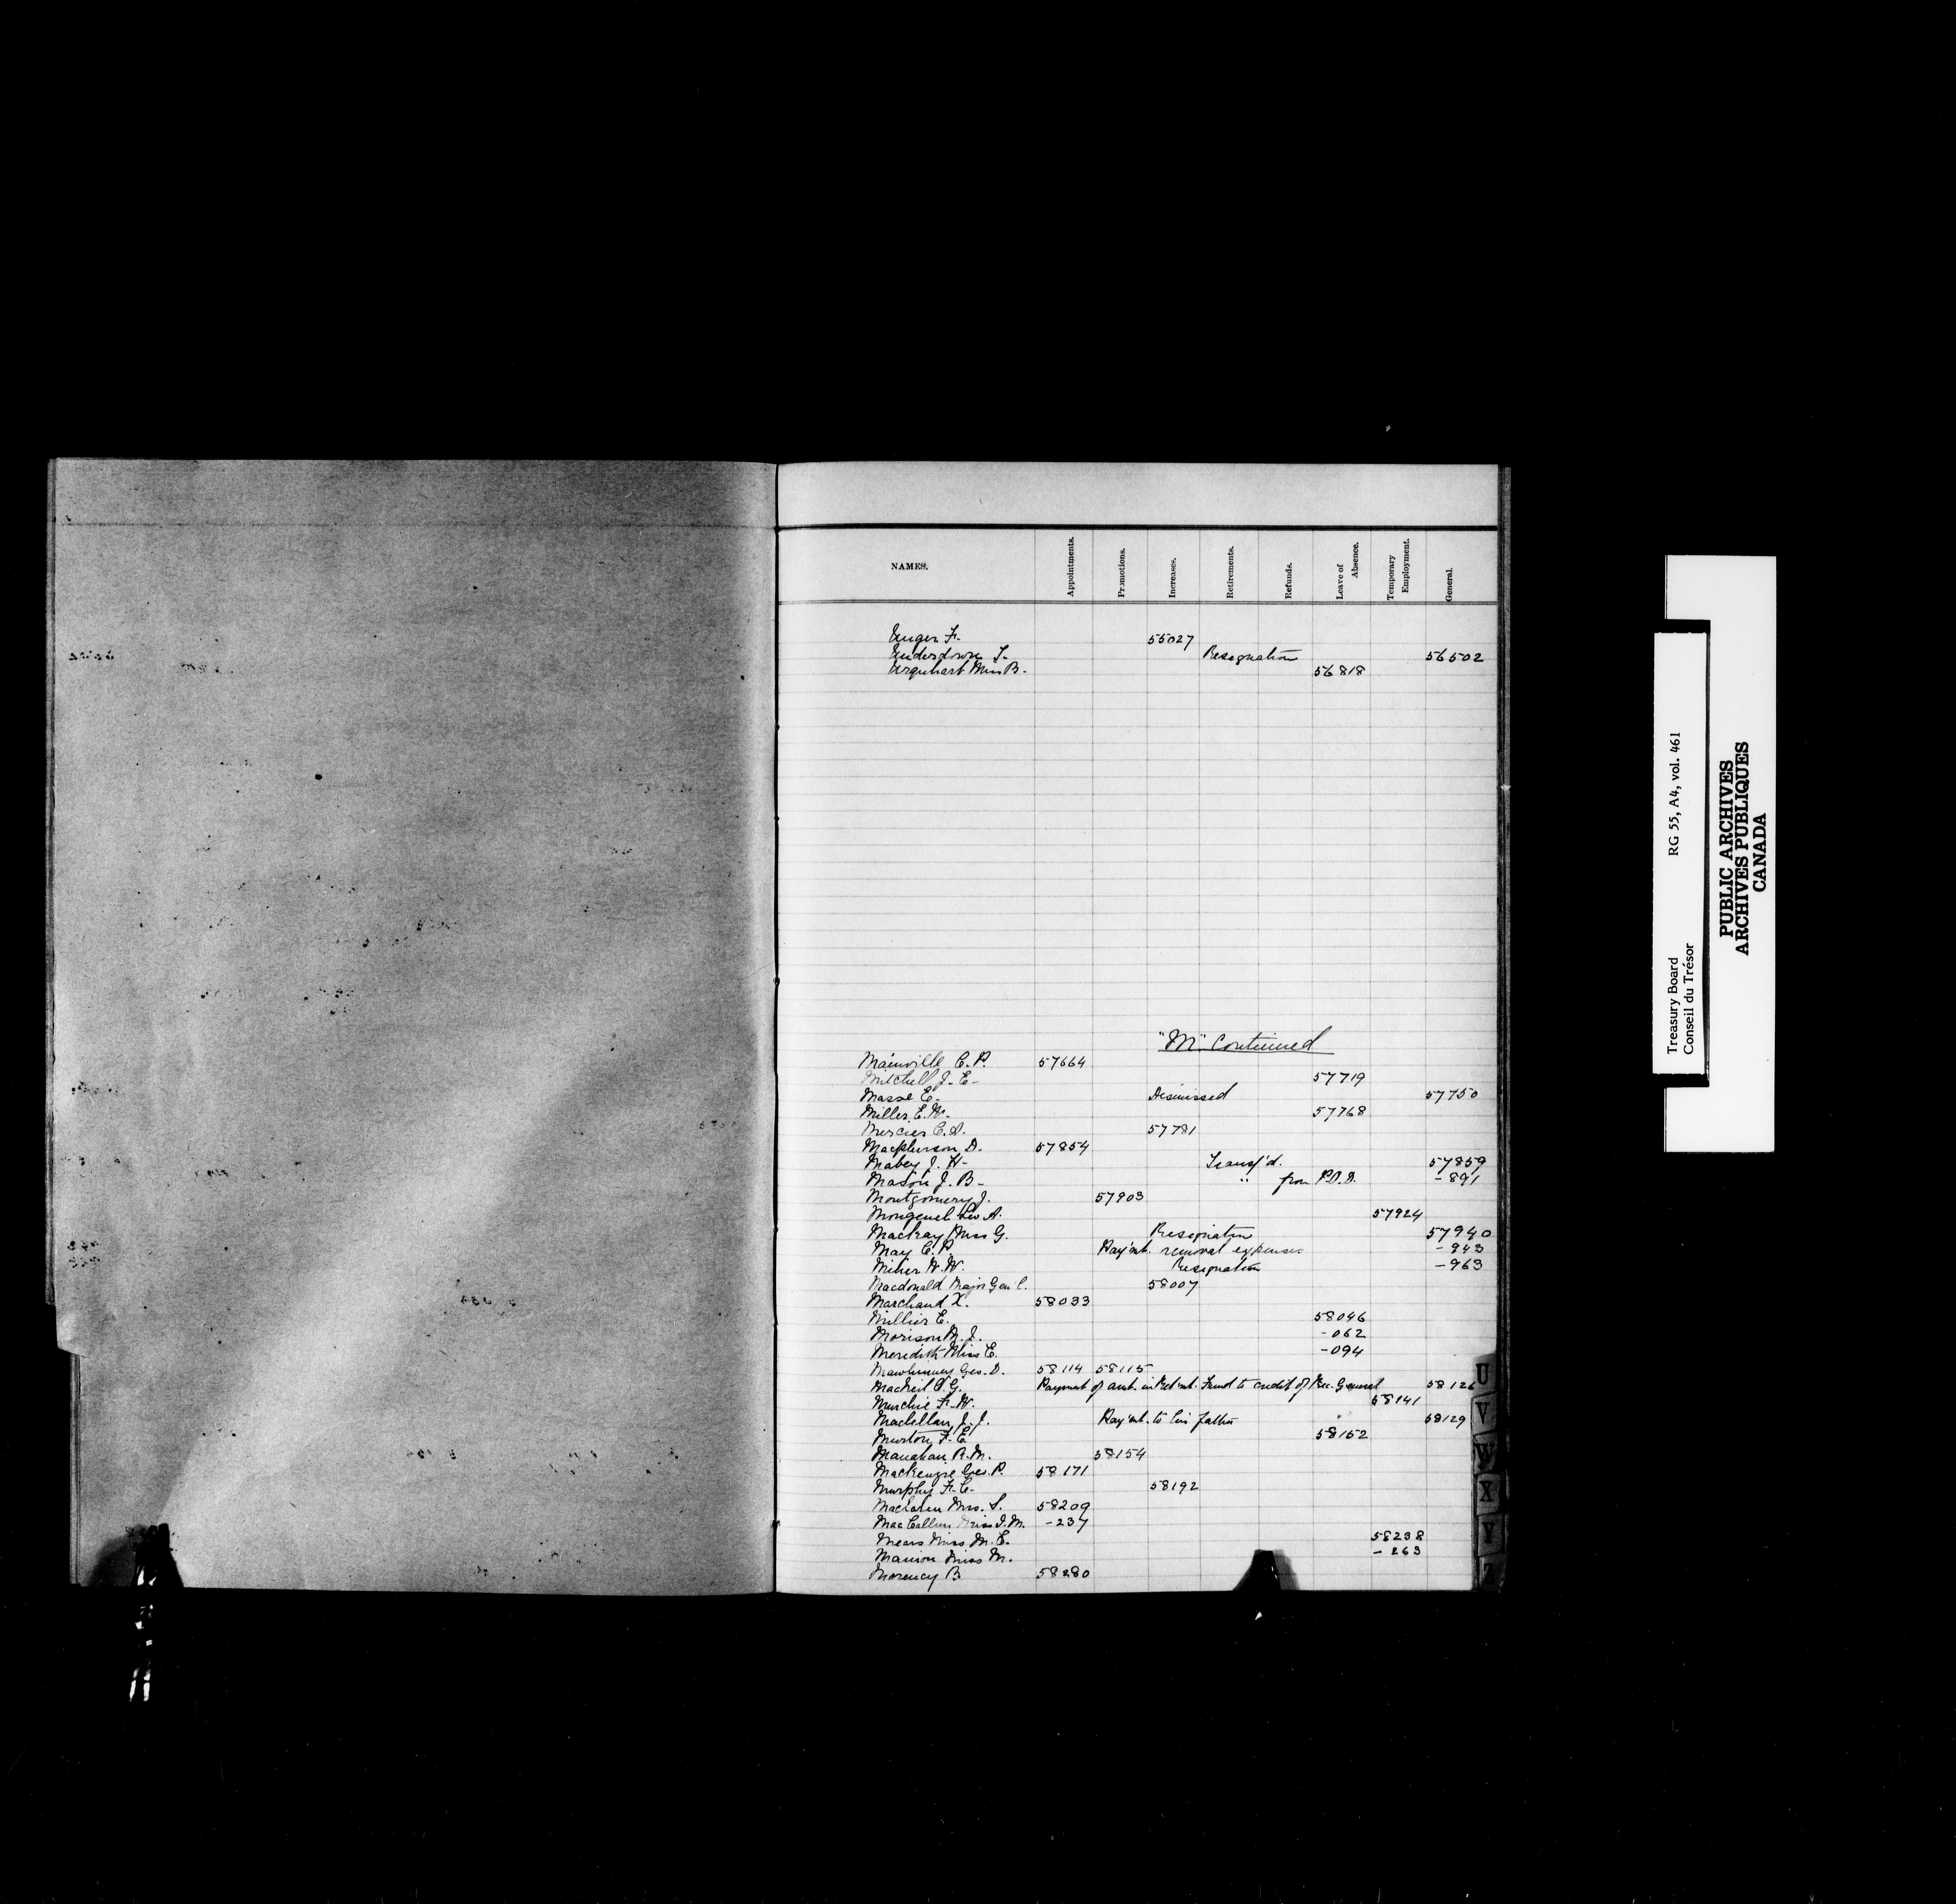 NAMES. Appointments. Promotions. Increases. Retirements. Refunds. Leave of Absence. Temporary Employment. General.
Unger F. 55027
Underdown T. Resignation 56502
Urquhart Miss B. 56818
"M" Continued
Mainville C. P. 57664
Mitchell J. E. 57719
Masse E. Dismissed 57750
Miller E. W. 57768
Mercier C. A. 57781
Macpherson D. 57854
Mabey J. H. Transf'd. 57859
Mason J. B. " from P.O.D. -891
Montgomery J. 57903
Mongenel Leo A. 57924
Mackay Miss G. Resignation 57940
May C. P. Pay'mt. removal expenses -943
Milner W. W. Resignation -963
Macdonald Major Gen'l. 58007
Marchand X. 58033
Millier E. 58046
Morison M. J. -062
Meredith Miss E. -094
Mawhinney Geo. D. 58114 58115
MacNeil P. G. Payment of amt. in Ret'mt. Fund to credit of Rec. General 58126
Murchie F. W. 58141
Maclellan J. J. Pay'mt. to his father 58129
Murton F. E. 58152
Manahan R. M. 58154
Mackenzie Geo. P. 58171
Murphy F. C. 58192
MacLaren Mrs. S. 58209
MacCallum Miss I. M. -237
Mears Miss M. E. 58238
Manion Miss M. -263
Morency B. 58280
U
V
W
X
Y
Z
Treasury Board RG 55, A4, vol. 461
Conseil du Trésor
PUBLIC ARCHIVES
ARCHIVES PUBLIQUES
CANADA